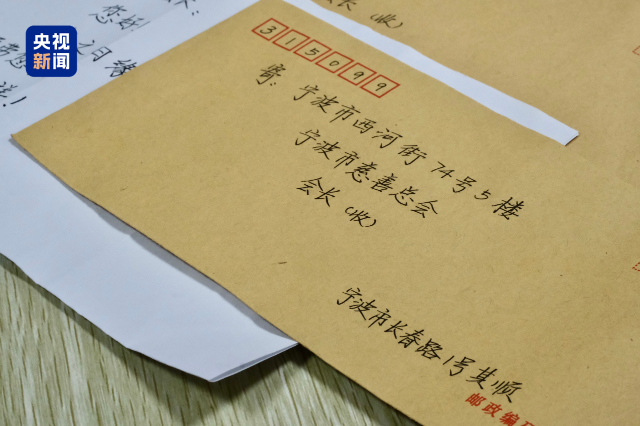 央视
新闻
长（收）
您好
315099
寄：宁波市西河街74号5楼
宁波市慈善总会
会长（收）
宁波市长春路1号其顺
邮政编